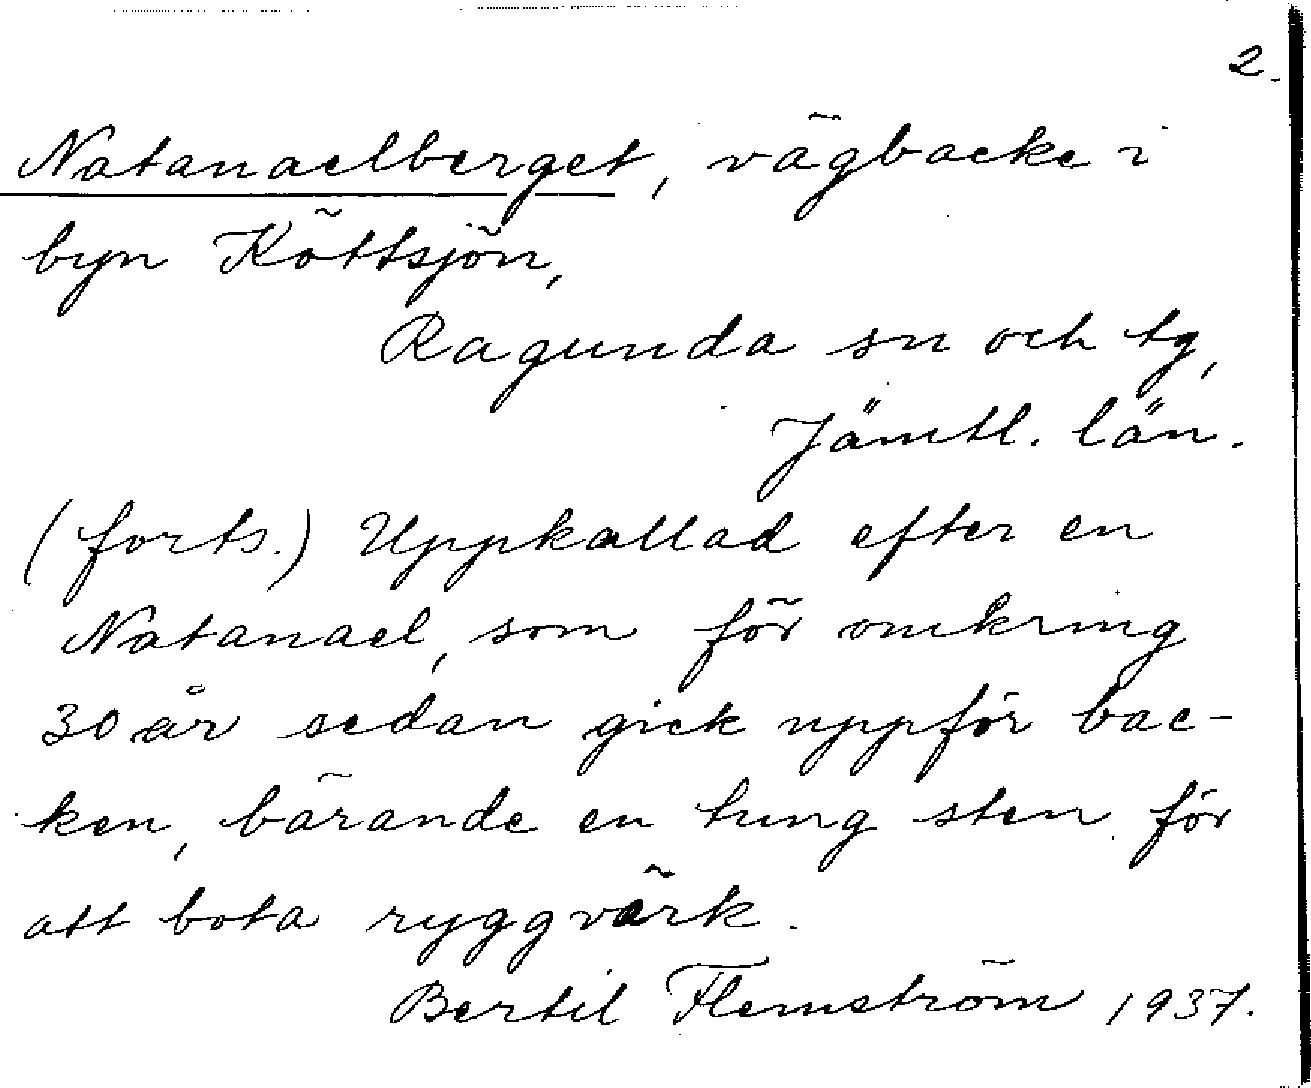 2.
Natanaelberget, vägbacke i
byn Köttsjön,
Ragunda sn och tg,
Jämtl. län.
(forts.) Uppkallad efter en
Natanael, som för omkring
30 år sedan gick uppför bac-
ken, bärande en tung sten för
att bota ryggvärk.
Bertil Flemström 1937.